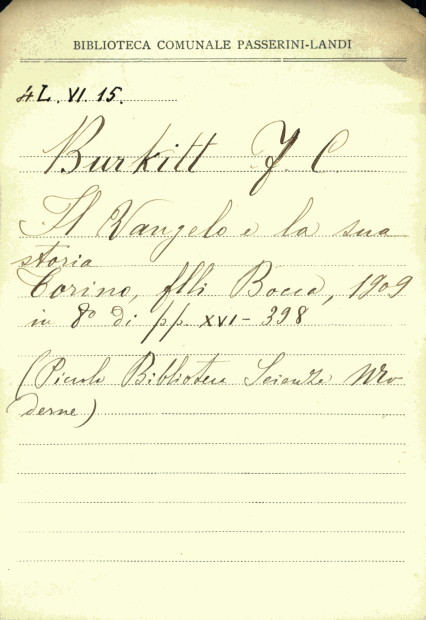 BIBLIOTECA COMUNALE PASSERINI-LANDI
4L. VI. 15.
Burkitt F. C.
Il Vangelo e la sua
storia
Torino, flli Bocca, 1909
in 8º di pp. XVI-398
(Piccola Biblioteca Scienze Mo
derne)